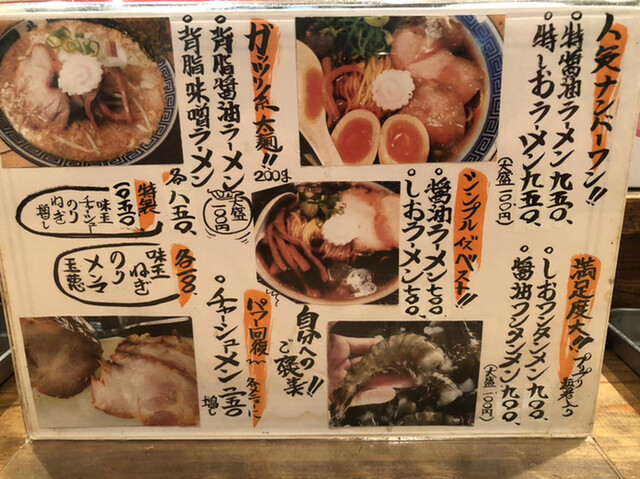 人気ナンバーワン!!
特醤油ラーメン 九五〇、
特しおラーメン 九五〇、
(大盛一〇〇円)
ガッツリ系太麺!!
200g
背脂醤油ラーメン
背脂味噌ラーメン
各八五〇、
大盛
一〇〇円
特製
一〇五〇、
味玉
チャーシュー
のり
ねぎ
増し
各一一〇、
味玉
ねぎ
のり
メンマ
玉葱
シンプル イズ ベスト!!
醤油ラーメン
しおラーメン
満足度大!!
プリプリ
海老入り
しおワンタンメン 九〇〇、
醤油ワンタンメン 九〇〇、
(大盛一〇〇円)
自分への
ご褒美!!
パワー回復〜
チャーシュメン
増し